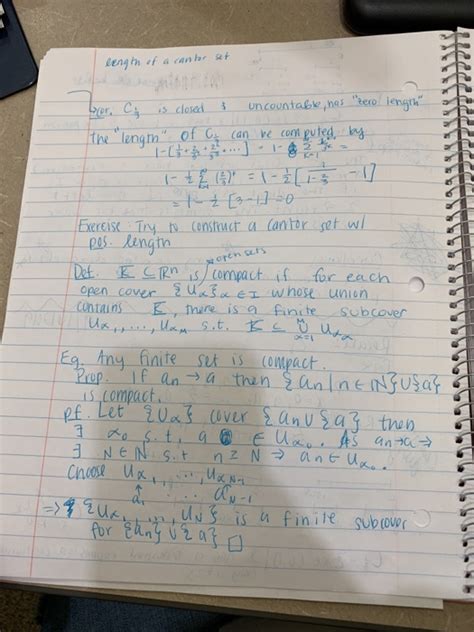 length of a cantor set
↳cor. C_{1/3} is closed & uncountable, has "zero length"
the "length" of C_{1/3} can be computed by
1-[1/3 + 2/3² + 2²/3³ + ...] = 1- ∑_{k=1}^{∞} 2^{k-1}/3^k =
1- 1/2 ∑_{k=1}^{∞} (2/3)^k = 1- 1/2 [1/(1-2/3) -1]
= 1- 1/2 [3-1] = 0
Exercise Try to construct a Cantor set w/
pos. length
open sets
Def. K ⊆ ℝⁿ is compact if for each
open cover {Uα}α∈I whose union
contains K, there is a finite subcover
Uα₁,...,Uαₘ s.t. K ⊆ ∪
Eg. Any finite set is compact.
Prop. If an→a then {an|n∈ℕ}∪{a}
is compact.
pf. Let {Uα} cover {an∪{a} then
∃ α₀ s.t. a ∈ Uα₀. As an→a→
∃ N∈ℕ s.t n≥N → an∈Uα₀.
Choose Uα₁,...,Uα_{N-1}
a₁ ... a_{N-1}
⇒ {Uα₁,...,U_N} is a finite subcover
for {an}∪{a} □